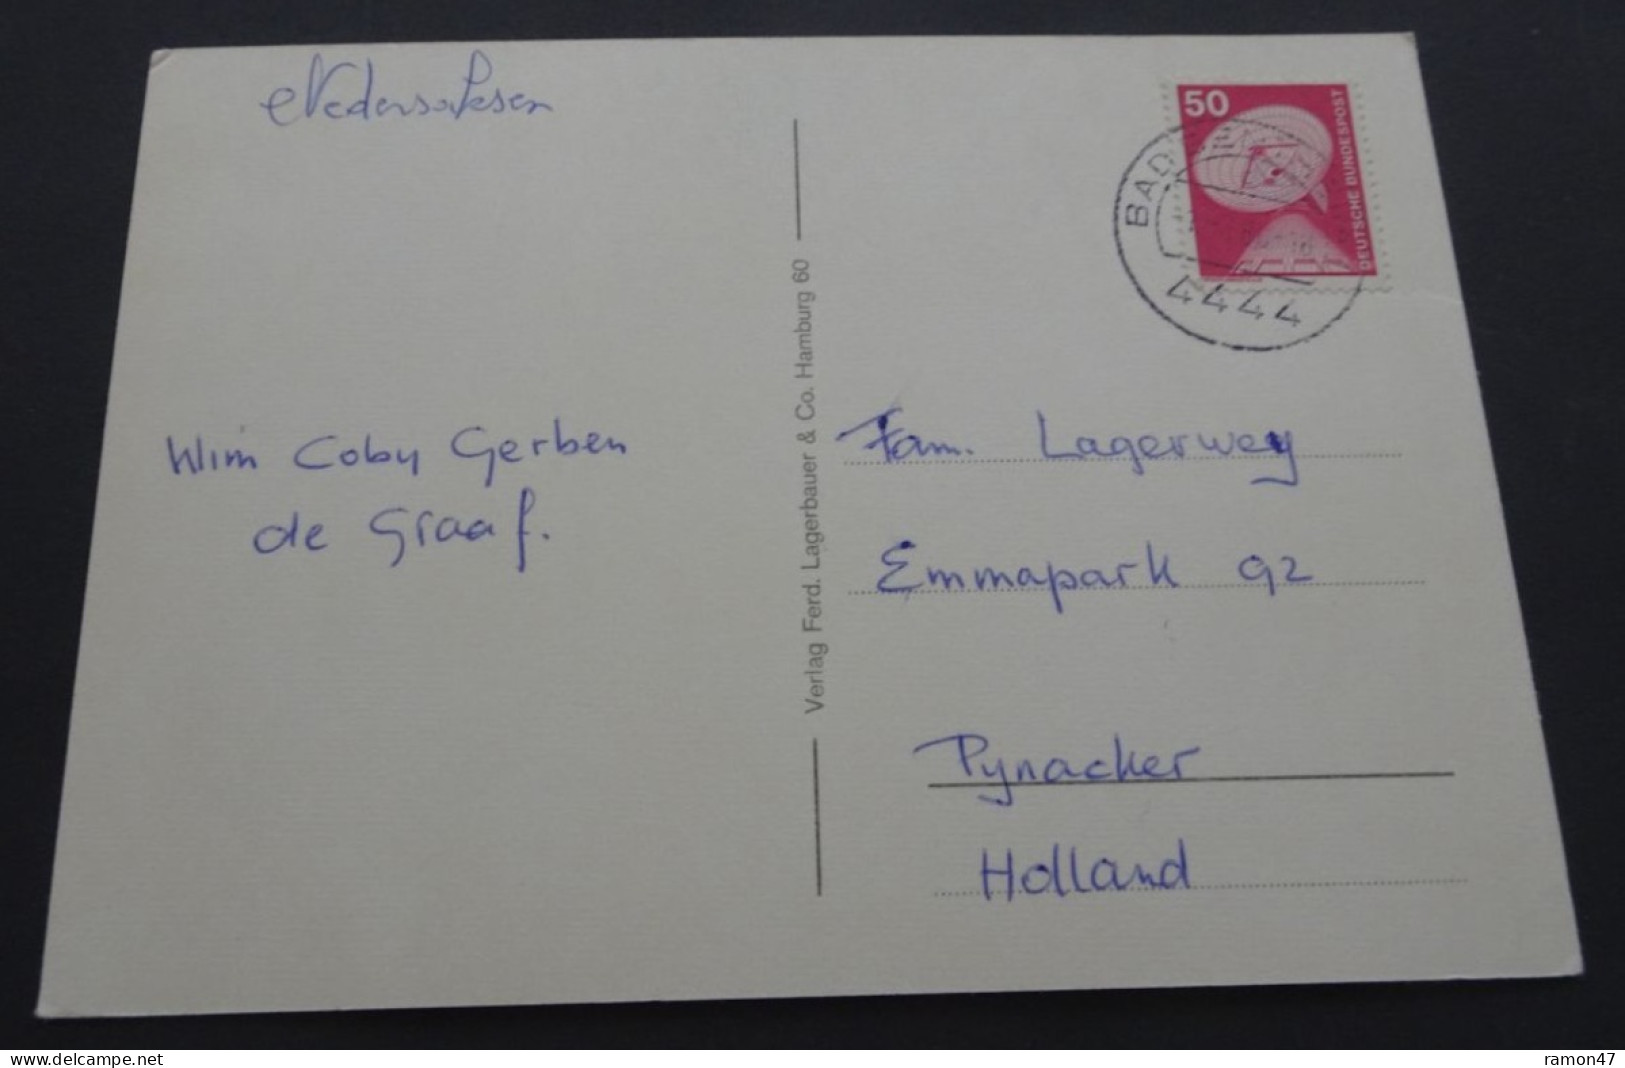 Nedersaksen
50
DEUTSCHE BUNDESPOST
BAD
4444
Wim Coby Gerben
de Graaf.
Verlag Ferd. Lagerbauer & Co. Hamburg 60
Fam. Lagerwey
Emmapark 92
Pynacker
Holland
www.delcampe.net
ramon47